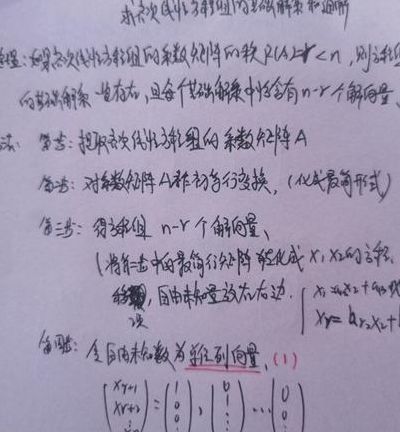 求齐次线性方程组的基础解系和通解
定理:如果齐次线性方程组的系数矩阵的秩R(A)=r<n,则方程组
的基础解系一定存在,且每个基础解系中恰含有n-r个解向量
法: 第一步:提取齐次线性方程组的系数矩阵A
第二步:对系数矩阵A作初等行变换,(化成最简形式)
第三步:得方程组 n-r个解向量、
(将第二步中的最简行矩阵转化成 x₁ x₂的方程.
自由未知量放在右边.
第四步:令自由未知数为单位列向量,(1)
(x r+1 x r+2 ⋮)=(1 0 0),(0 1 ⋮)…(0 0 ⋮